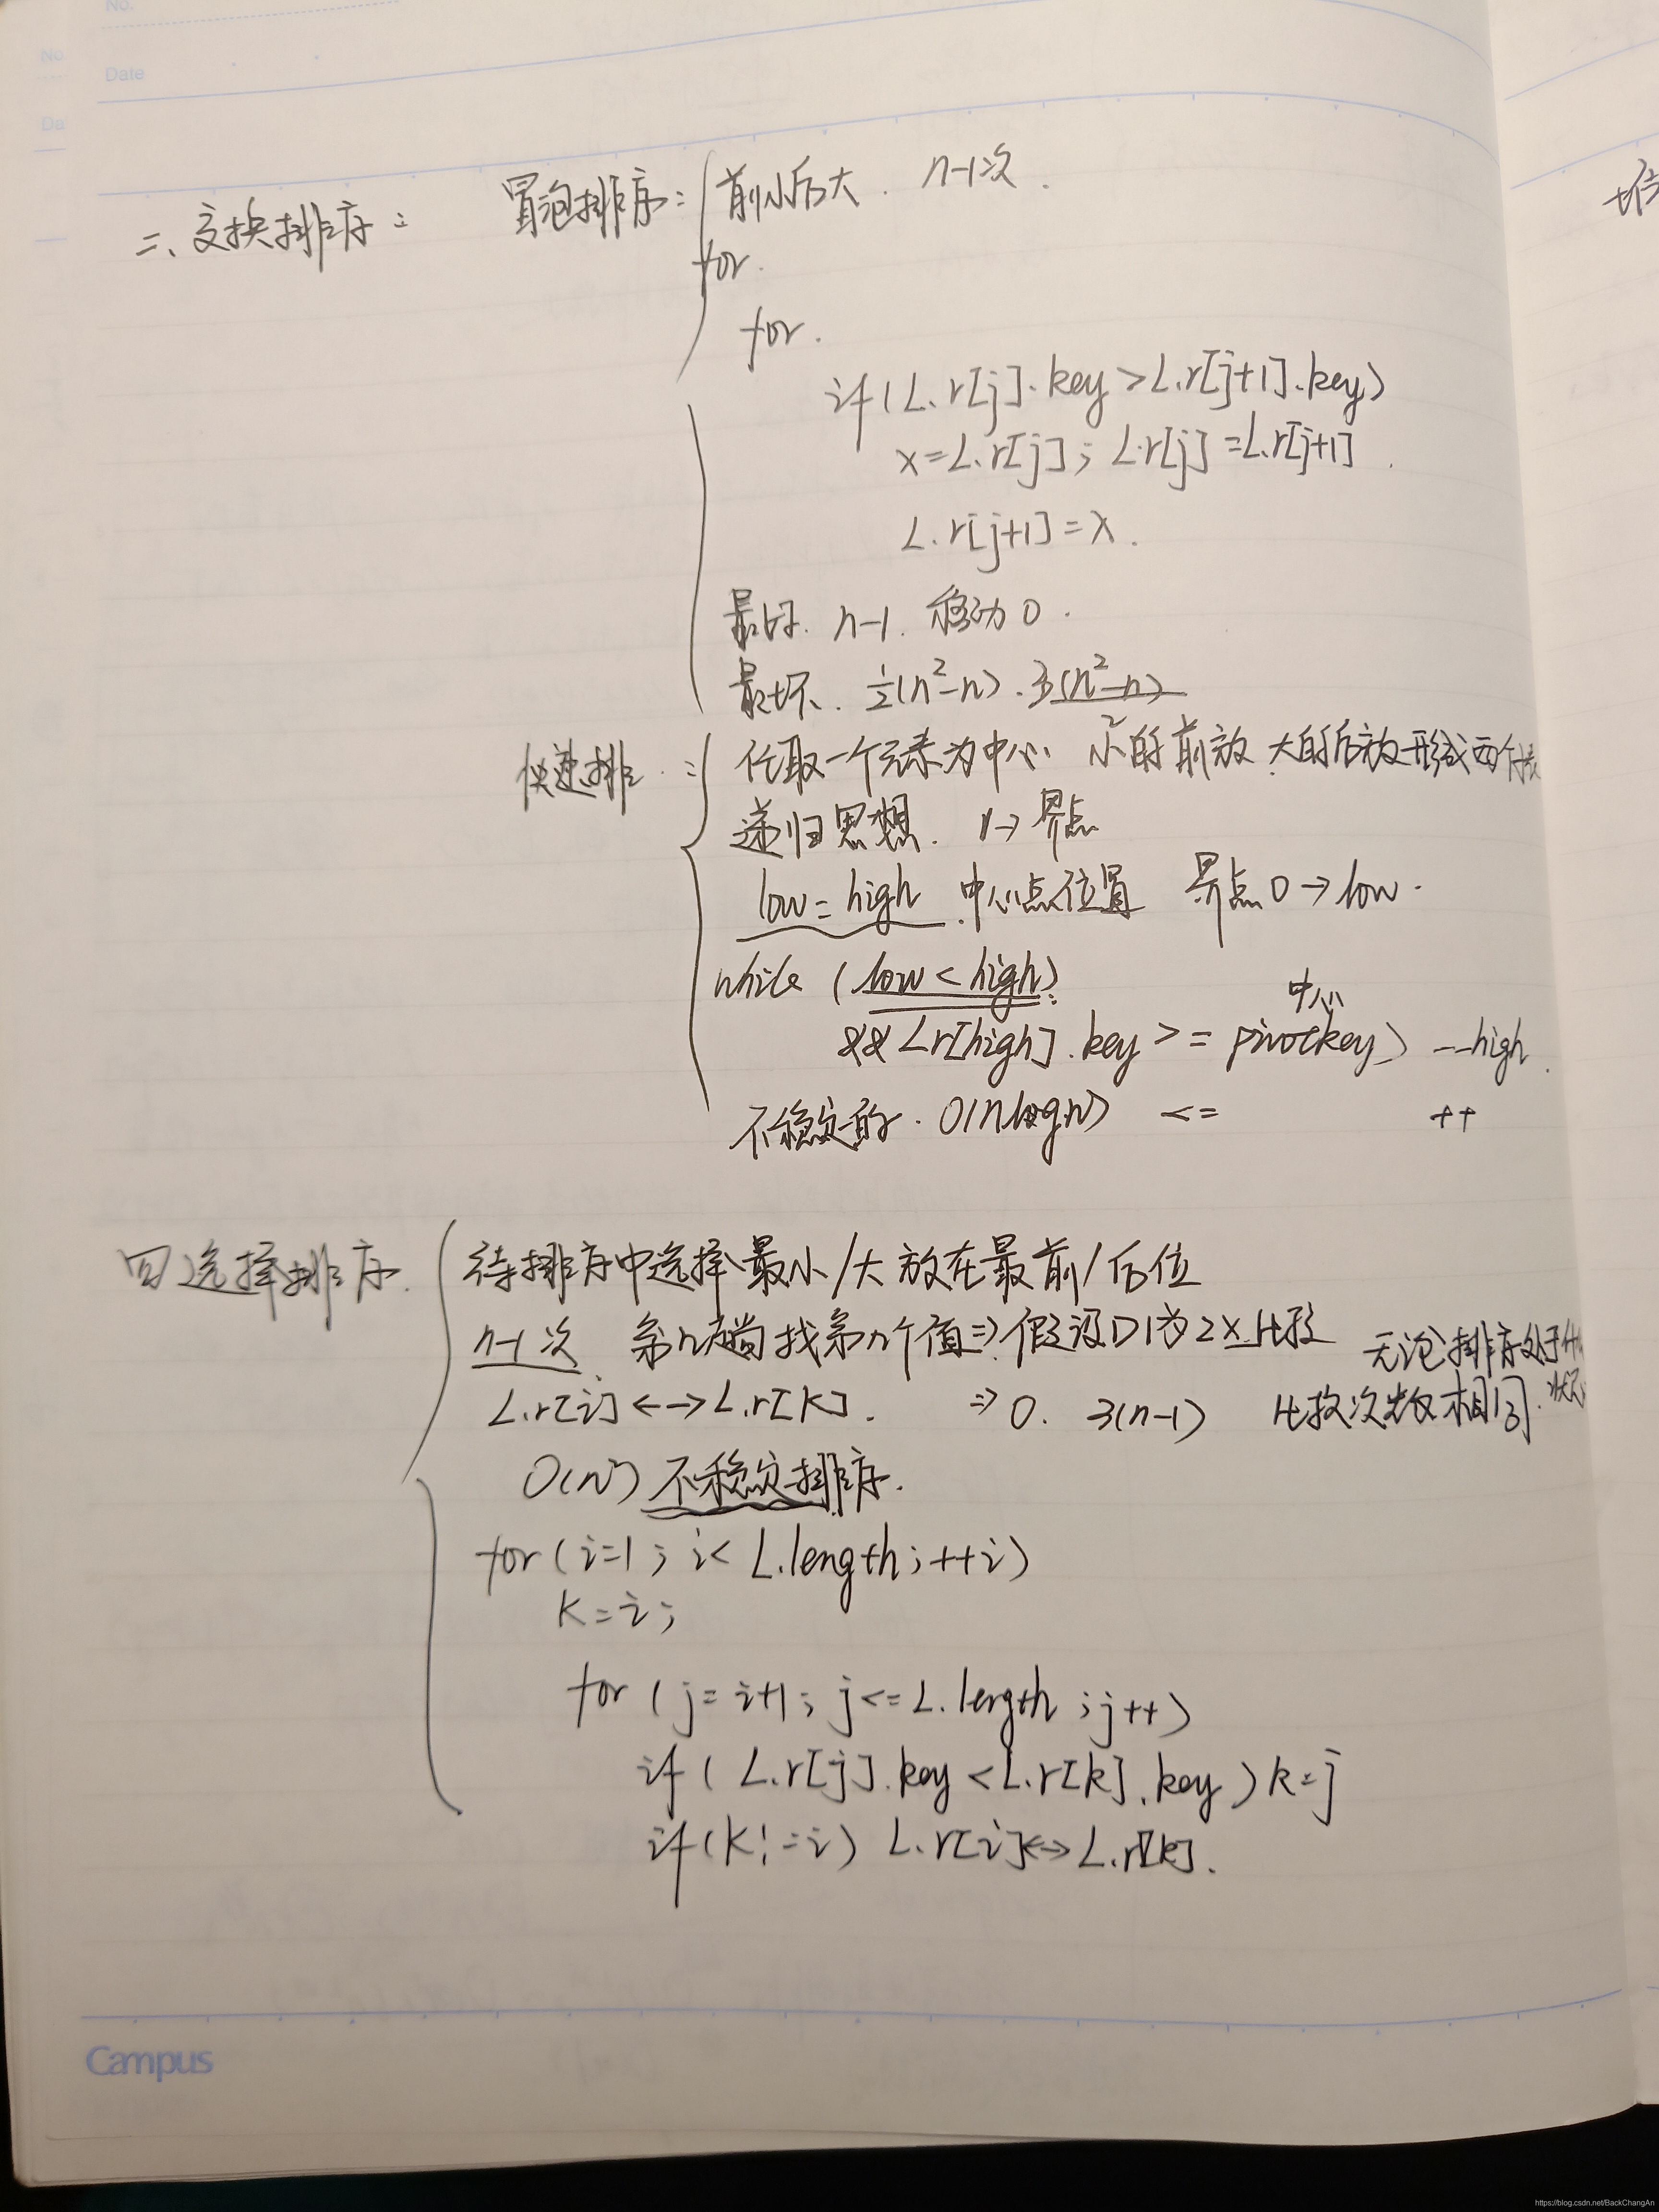 No.
Date
No
Da
二、交换排序: 冒泡排序: 前小后大. n-1次.
for.
for.
if(L.r[j].key>L.r[j+1].key)
x=L.r[j]; L.r[j]=L.r[j+1]
L.r[j+1]=x.
最好. n-1. 移动0.
最坏. ½(n²-n). 3(n²-n)
2
快速排: 任取一个元素为中心 小的前放 大的后放形成两个
递归思想. 1→界点
low=high 中心点位置 界点0→low.
while (low<high)
中心
&&L.r[high].key>=pivotkey) --high.
不稳定的. O(nlogn) <= ++
四选择排序. 待排序中选择最小/大放在最前/后位
n-1次. 第n趟找第n个值⇒假设D1为 比较 无论排序处于
L.r[i]←→L.r[k]. ⇒0. 3(n-1) 比较次数相同.
O(n²)不稳定排序.
for(i=1; i<L.length; ++i)
k=i;
for (j=i+1; j<=L.length; j++)
if( L.r[j].key<L.r[k].key)k=j
if(k!=i) L.r[i]<->L.r[k].
Campus
https://blog.csdn.net/BackChangAn